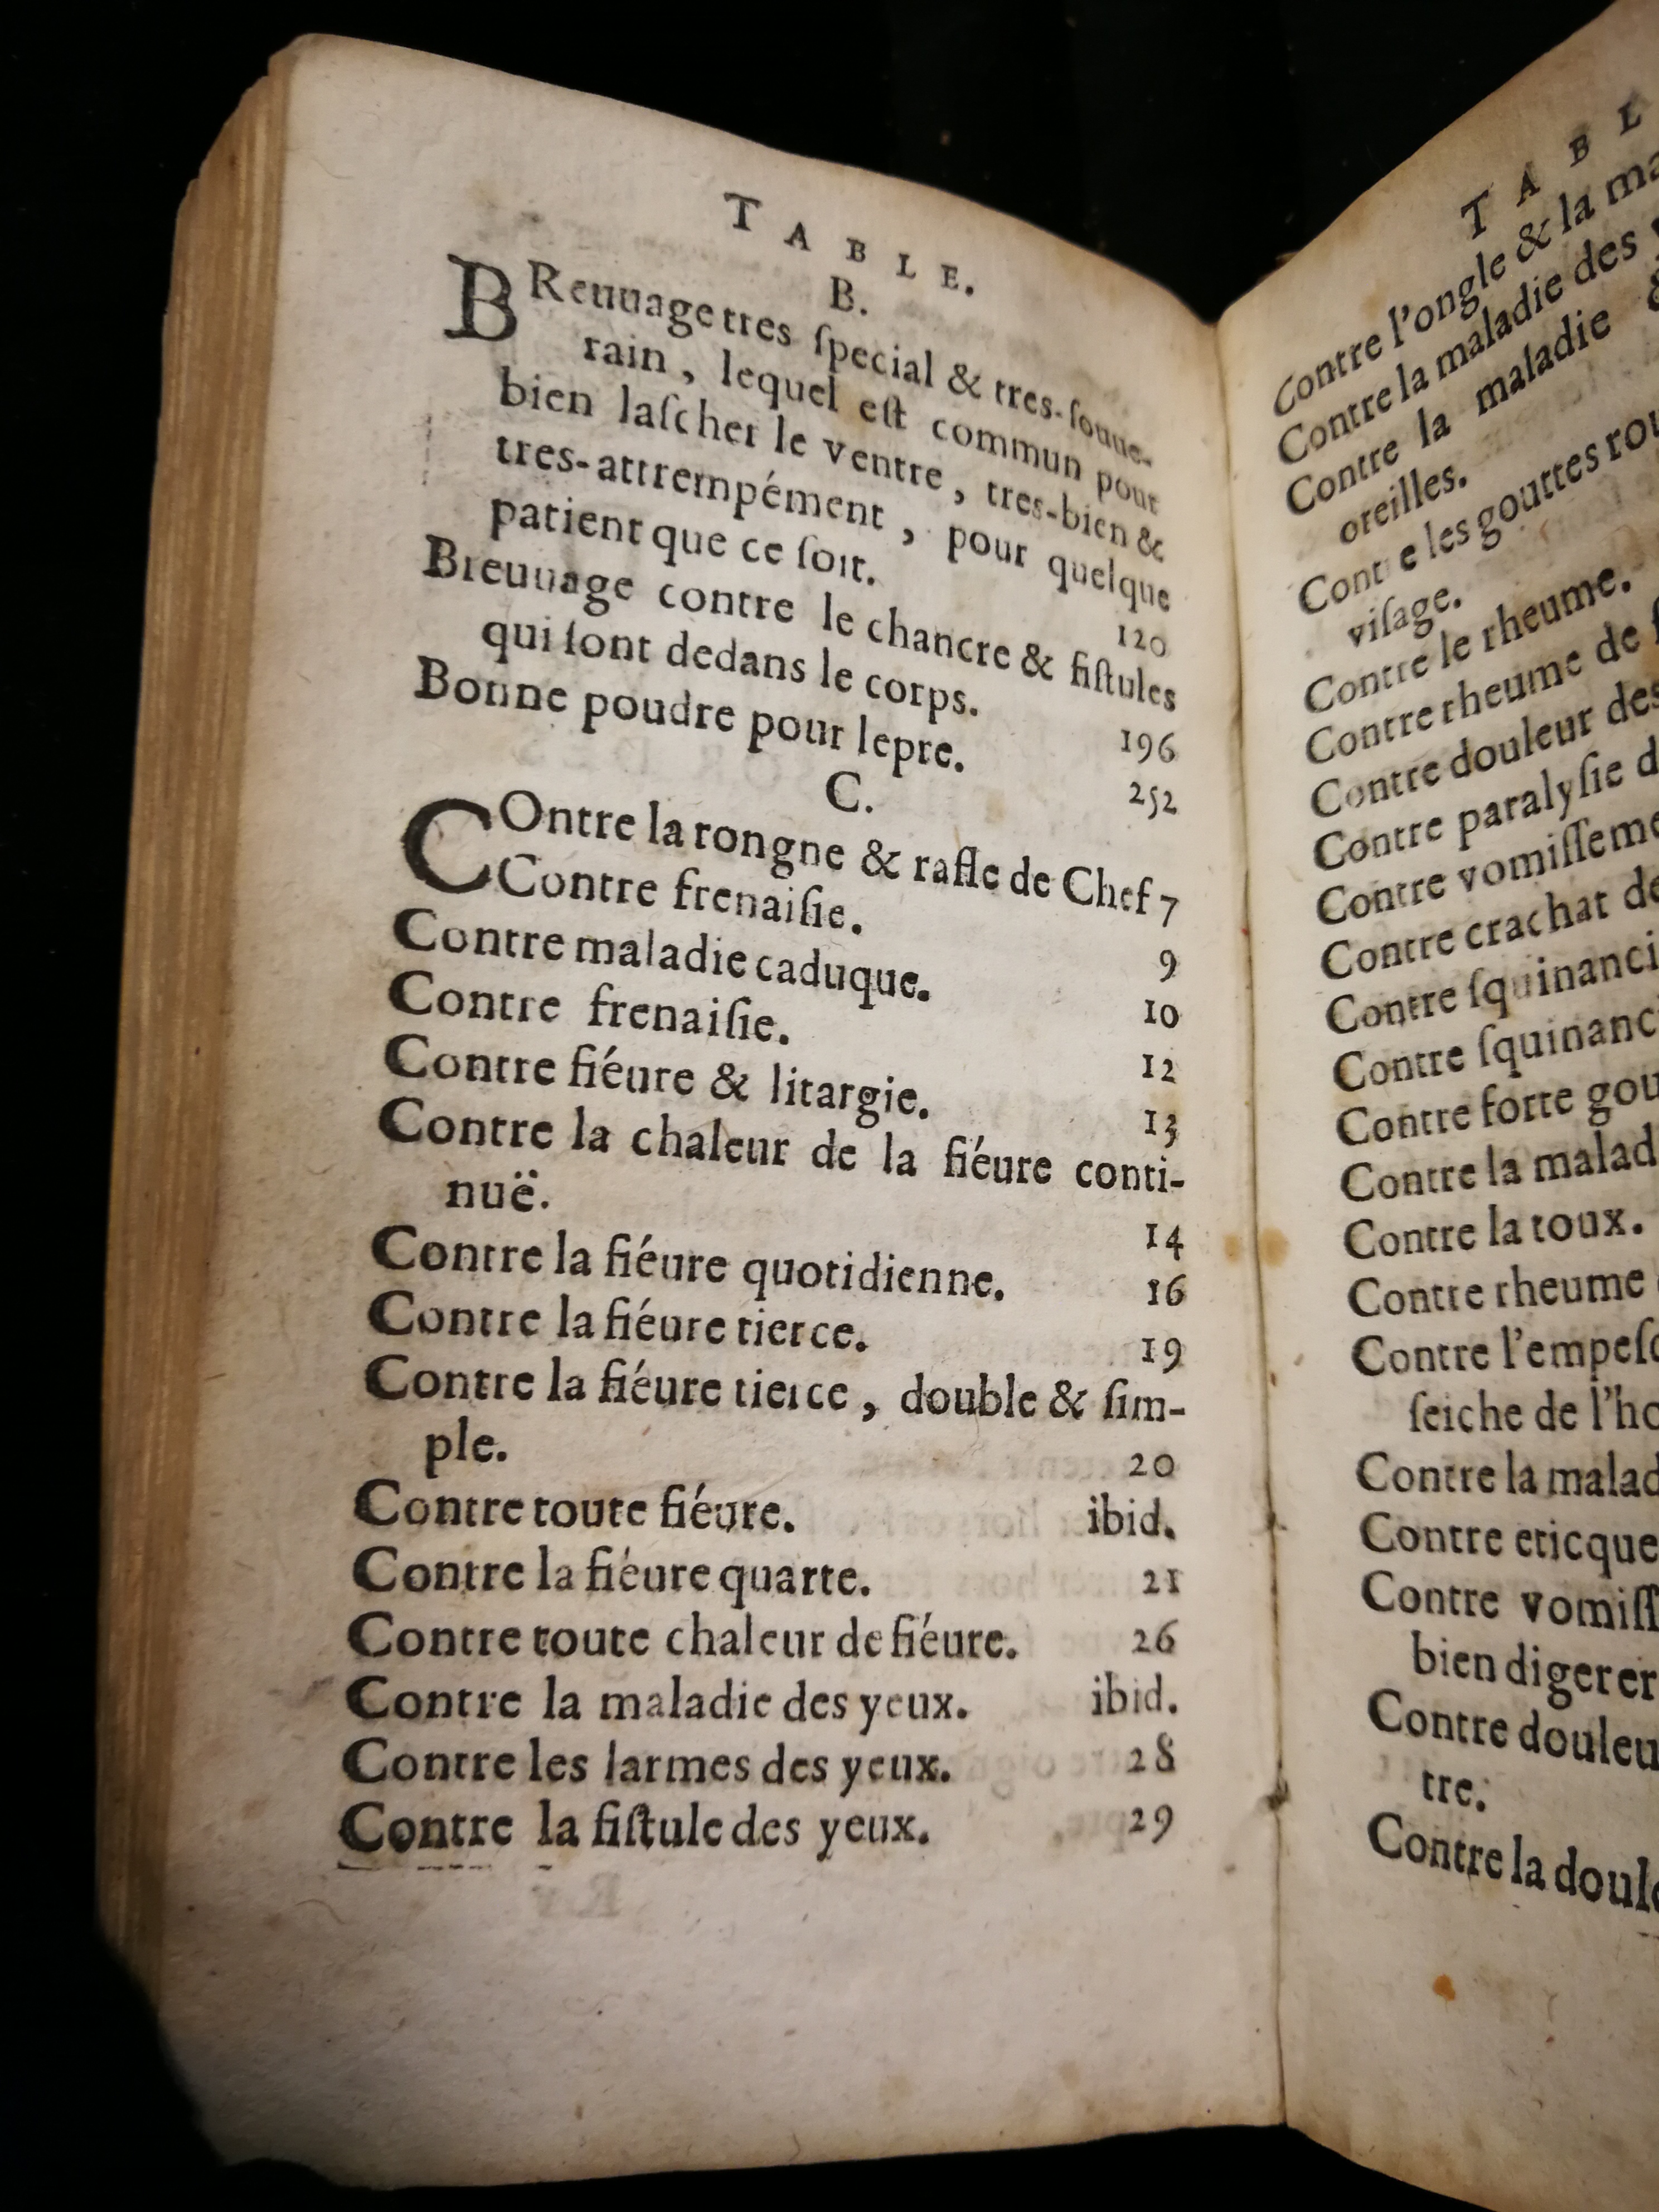 TABLE.
B.
BReuuage tres ſpecial & tres-ſouue-
rain, lequel eſt commun pour
bien laſcher le ventre, tres-bien &
tres-attrempément, pour quelque
patient que ce ſoit. 120
Breuuage contre le chancre & fiſtules
qui ſont dedans le corps. 196
Bonne poudre pour lepre. 252
C.
COntre la rongne & rafle de Chef 7
Contre frenaiſie. 9
Contre maladie caduque. 10
Contre frenaiſie. 12
Contre fiéure & litargie. 13
Contre la chaleur de la fiéure conti-
nuë. 14
Contre la fiéure quotidienne. 16
Contre la fiéure tierce. 19
Contre la fiéure tierce, double & ſim-
ple. 20
Contre toute fiéure. ibid.
Contre la fiéure quarte. 21
Contre toute chaleur de fiéure. 26
Contre la maladie des yeux. ibid.
Contre les larmes des yeux. 28
Contre la fiſtule des yeux. 29
TABL
Contre l'ongle & la ma
Contre la maladie des
Contre la maladie
oreilles.
Contre les gouttes rou
viſage.
Contre le rheume.
Contre rheume de
Contre douleur des
Contre paralyſie d
Contre vomiſſeme
Contre crachat de
Contre ſquinanci
Contre ſquinanc
Contre forte gou
Contre la malad
Contre la toux.
Contre rheume
Contre l'empeſc
ſeiche de l'ho
Contre la malad
Contre eticque
Contre vomiſſ
bien digerer
Contre douleu
tre:
Contre la doule